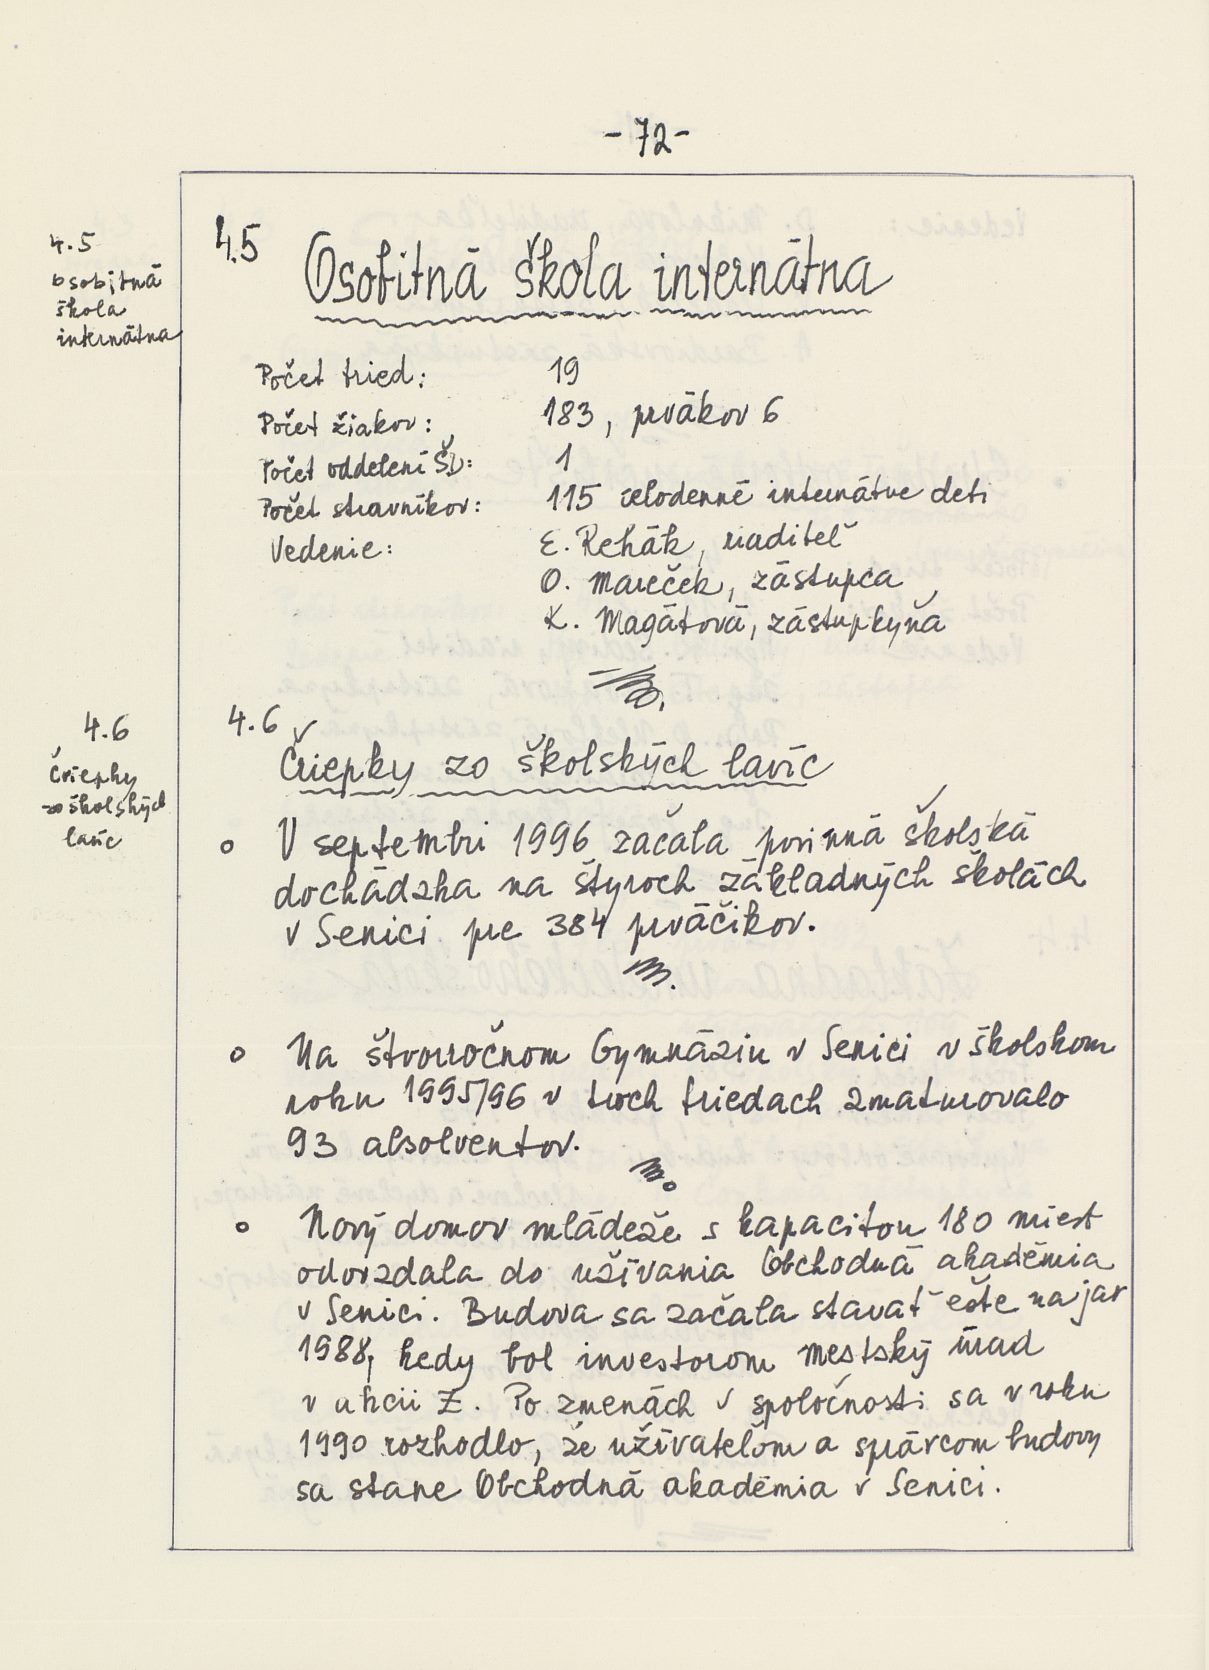 - 72 -
4.5
osobitná
škola
internátna
4.5
Osobitná škola internátna
Počet tried: 19
Počet žiakov: 183, prvákov 6
Počet oddelení ŠD: 1
Počet stravníkov: 115 celodenné internátne deti
Vedenie: E. Rehák, riaditeľ
O. Mareček, zástupca
K. Magátová, zástupkyňa
4.6
Čriepky
zo školských
lavíc
4.6
Čriepky zo školských lavíc
o V septembri 1996 začala povinná školská
dochádzka na štyroch základných školách
v Senici pre 384 prváčikov.
o Na štvorročnom Gymnáziu v Senici v školskom
roku 1995/96 v troch triedach zmaturovalo
93 absolventov.
o Nový domov mládeže s kapacitou 180 miest
odovzdala do užívania Obchodná akadémia
v Senici. Budova sa začala stavať ešte na jar
1988, kedy bol investorom Mestský úrad
v akcii Z. Po zmenách v spoločnosti sa v roku
1990 rozhodlo, že užívateľom a správcom budovy
sa stane Obchodná akadémia v Senici.